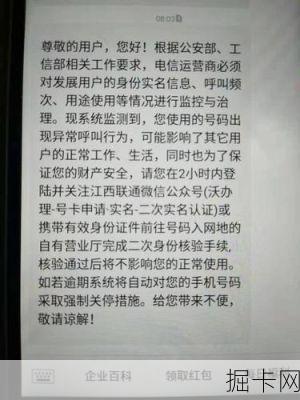 08:03
尊敬的用户，您好！根据公安部、工
信部相关工作要求，电信运营商必须
对发展用户的身份实名信息、呼叫频
次、用途使用等情况进行监控与治
理。现系统监测到，您使用的号码出
现异常呼叫行为，可能影响了其它用
户的正常工作、生活，同时也为了保
证您的财产安全，请您在2小时内登
陆并关注江西联通微信公众号(沃办
理-号卡申请·实名-二次实名认证)或
携带有效身份证件前往号码入网地的
自有营业厅完成二次身份核验手续，
核验通过后将不影响您的正常使用。
如若逾期系统将自动对您的手机号码
采取强制关停措施。给您带来不便，
敬请谅解！
企业百科 领取红包
掘卡网